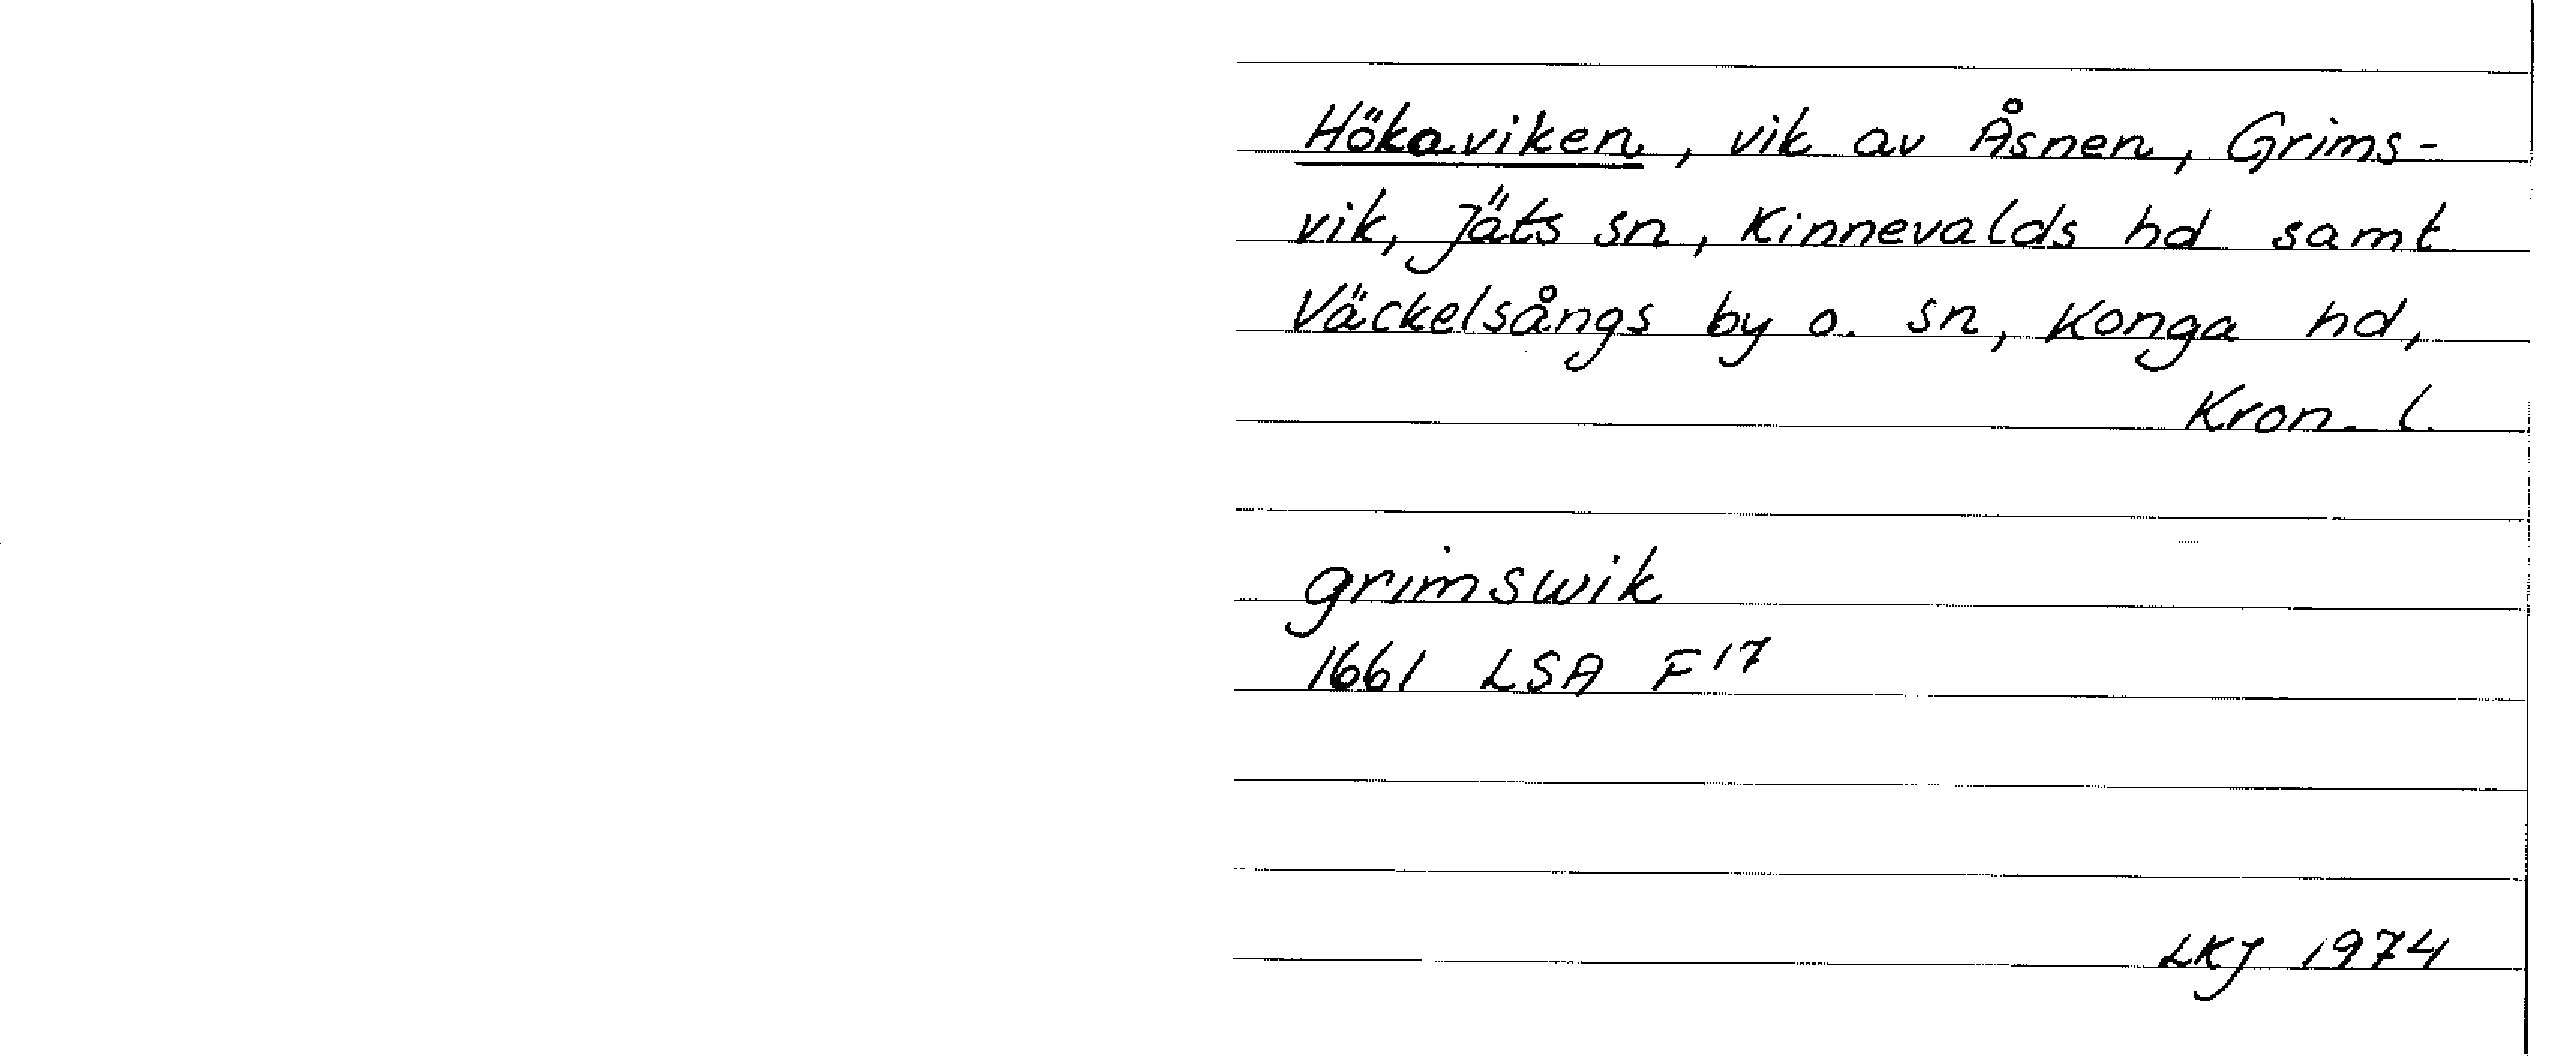 Hökaviken, vik av Åsnen, Grims-
vik, Jäts sn, Kinnevalds hd samt
Väckelsångs by o. sn, Konga hd,
Kron. l.
grimswik
1661 LSA F17
LKJ 1974